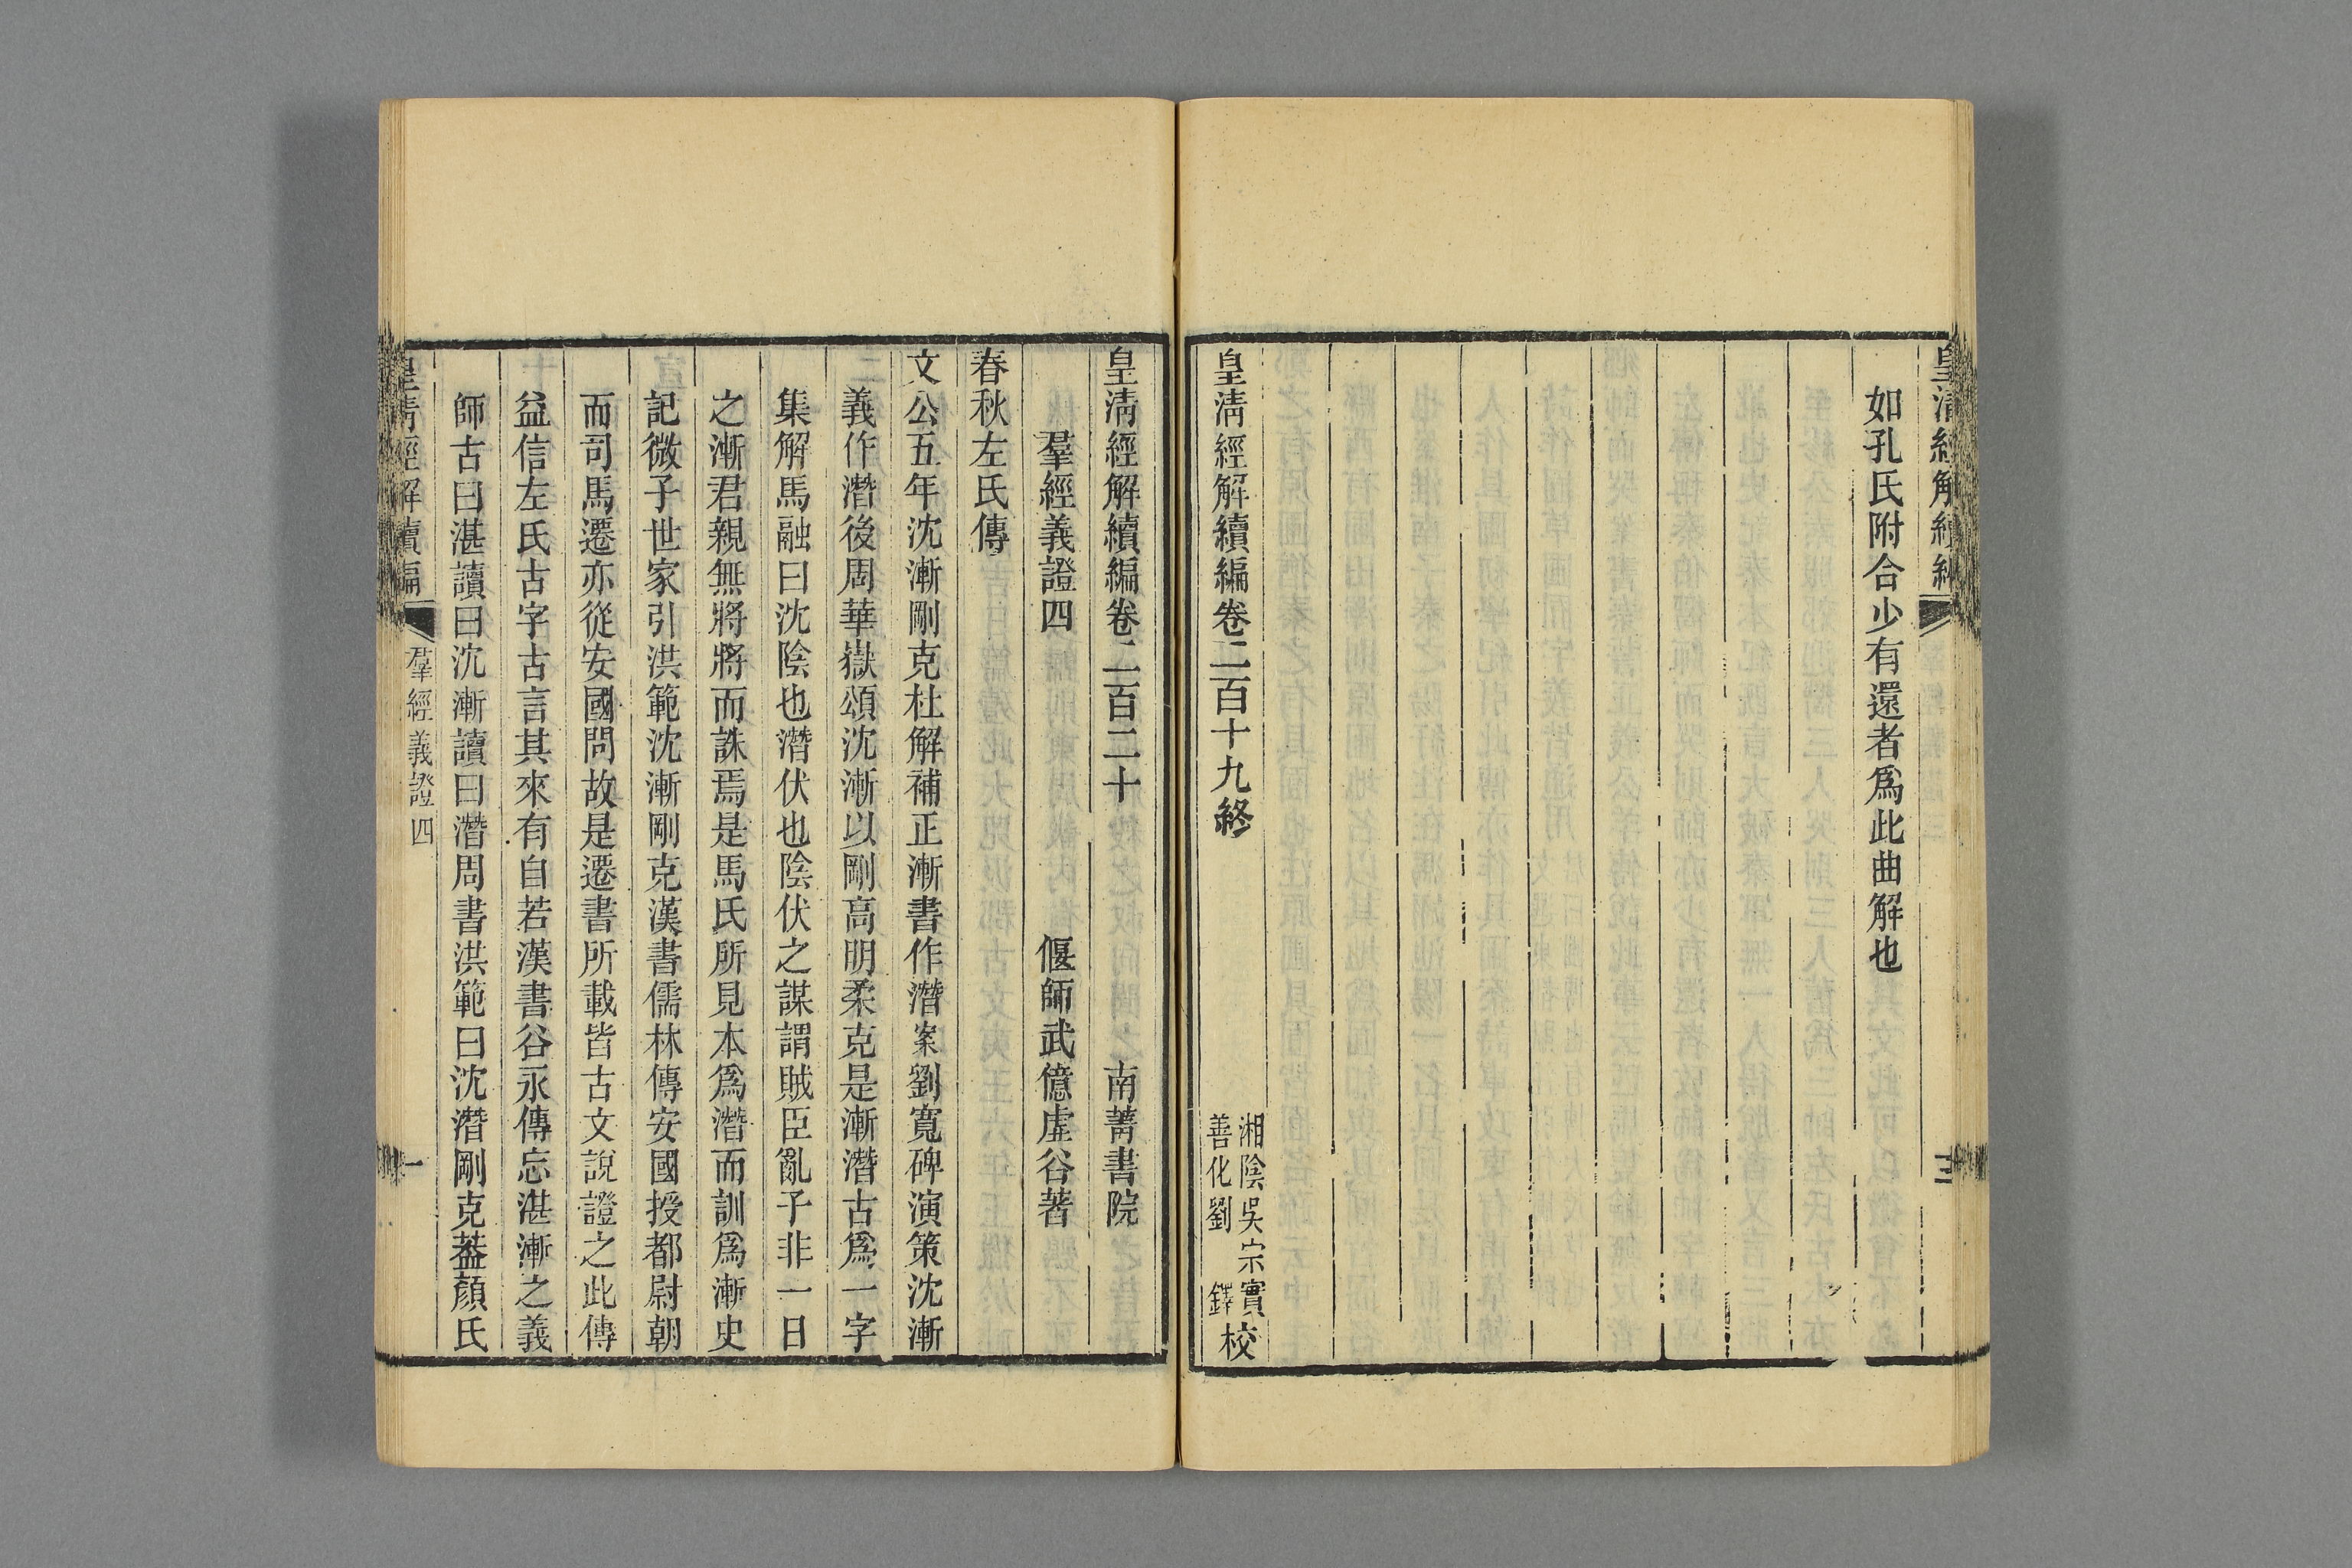 如孔氏附合少有還者爲此曲解也
皇淸經解續編卷二百十九終
湘陰吳宗實
善化劉 鐸
校
皇淸經解續編卷二百二十 南菁書院
羣經義證四 偃師武億虛谷著
春秋左氏傳
文公五年沈漸剛克杜解補正漸書作潛案劉寬碑演策沈漸
義作潛後周華嶽頌沈漸以剛高明柔克是漸潛古爲一字
集解馬融曰沈陰也潛伏也陰伏之謀謂賊臣亂子非一日
之漸君親無將將而誅焉是馬氏所見本爲潛而訓爲漸史
記微子世家引洪範沈漸剛克漢書儒林傳安國授都尉朝
而司馬遷亦從安國問故是遷書所載皆古文說證之此傳
益信左氏古字古言其來有自若漢書谷永傳忘湛漸之義
師古曰湛讀曰沈漸讀曰潛周書洪範曰沈潛剛克葢顏氏
皇淸經解續編
羣經義證四
一